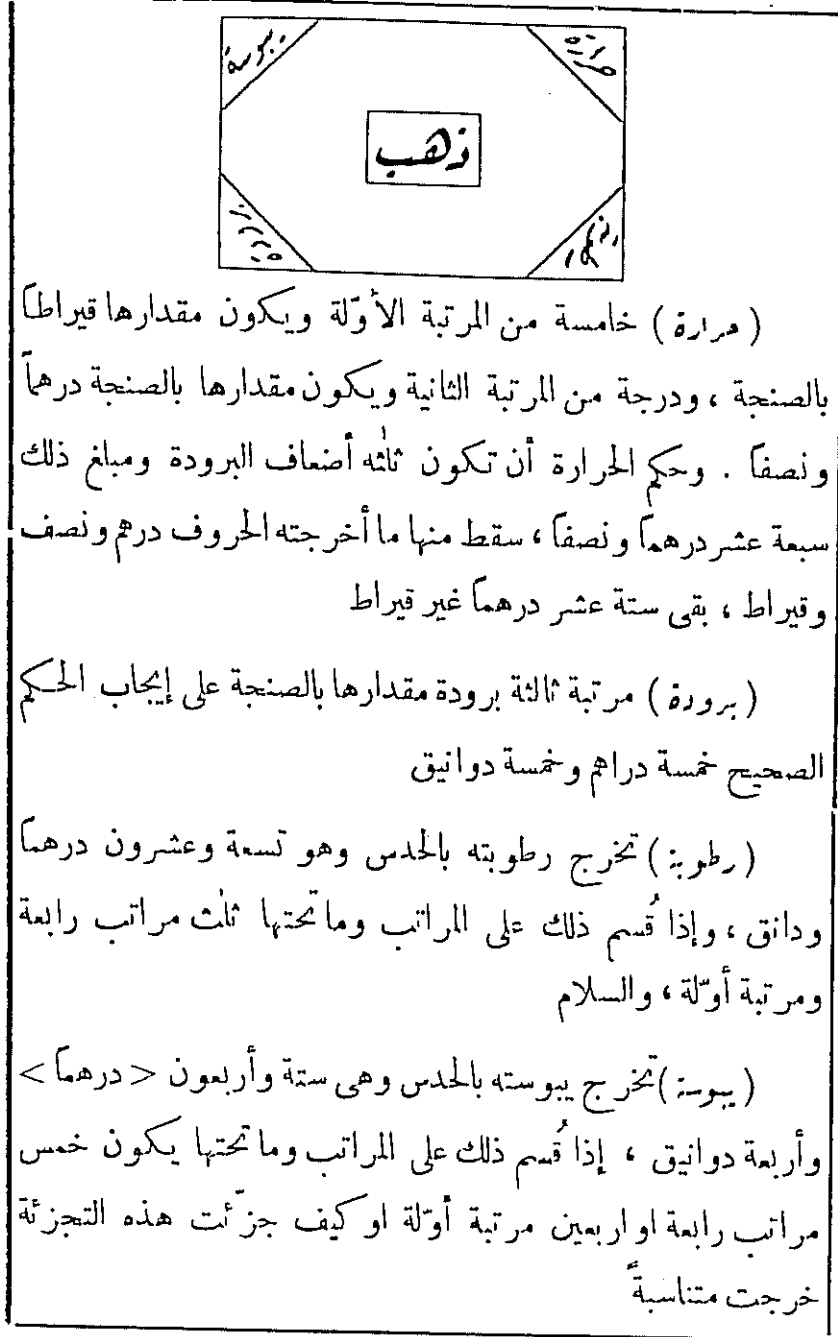 حرارة يبوسة
ذهب
رطوبة برودة
(حرارة) خامسة من المرتبة الأوّلة ويكون مقدارها قيراطاً
بالصنجة ، ودرجة من المرتبة الثانية ويكون مقدارها بالصنجة درهماً
ونصفاً . وحكم الحرارة أن تكون ثلٰثه أضعاف البرودة ومبلغ ذلك
سبعة عشر درهماً ونصفاً ، سقط منها ما أخرجته الحروف درهم ونصف
وقيراط ، بقى ستة عشر درهماً غير قيراط
(برودة) مرتبة ثالثة برودة مقدارها بالصنجة على إيجاب الحكم
الصحيح خمسة دراهم وخمسة دوانيق
(رطوبة) تخرج رطوبته بالحدس وهو تسعة وعشرون درهماً
ودانق ، وإذا قُسم ذلك على المراتب وما تحتها ثلٰث مراتب رابعة
ومرتبة أوّلة ، والسلام
(يبوسة) تخرج يبوسته بالحدس وهى ستة وأربعون <درهماً>
وأربعة دوانيق ، إذا قُسم ذلك على المراتب وما تحتها يكون خمس
مراتب رابعة او اربعين مرتبة أوّلة او كيف جزّئت هذه التجزئة
خرجت متناسبةً